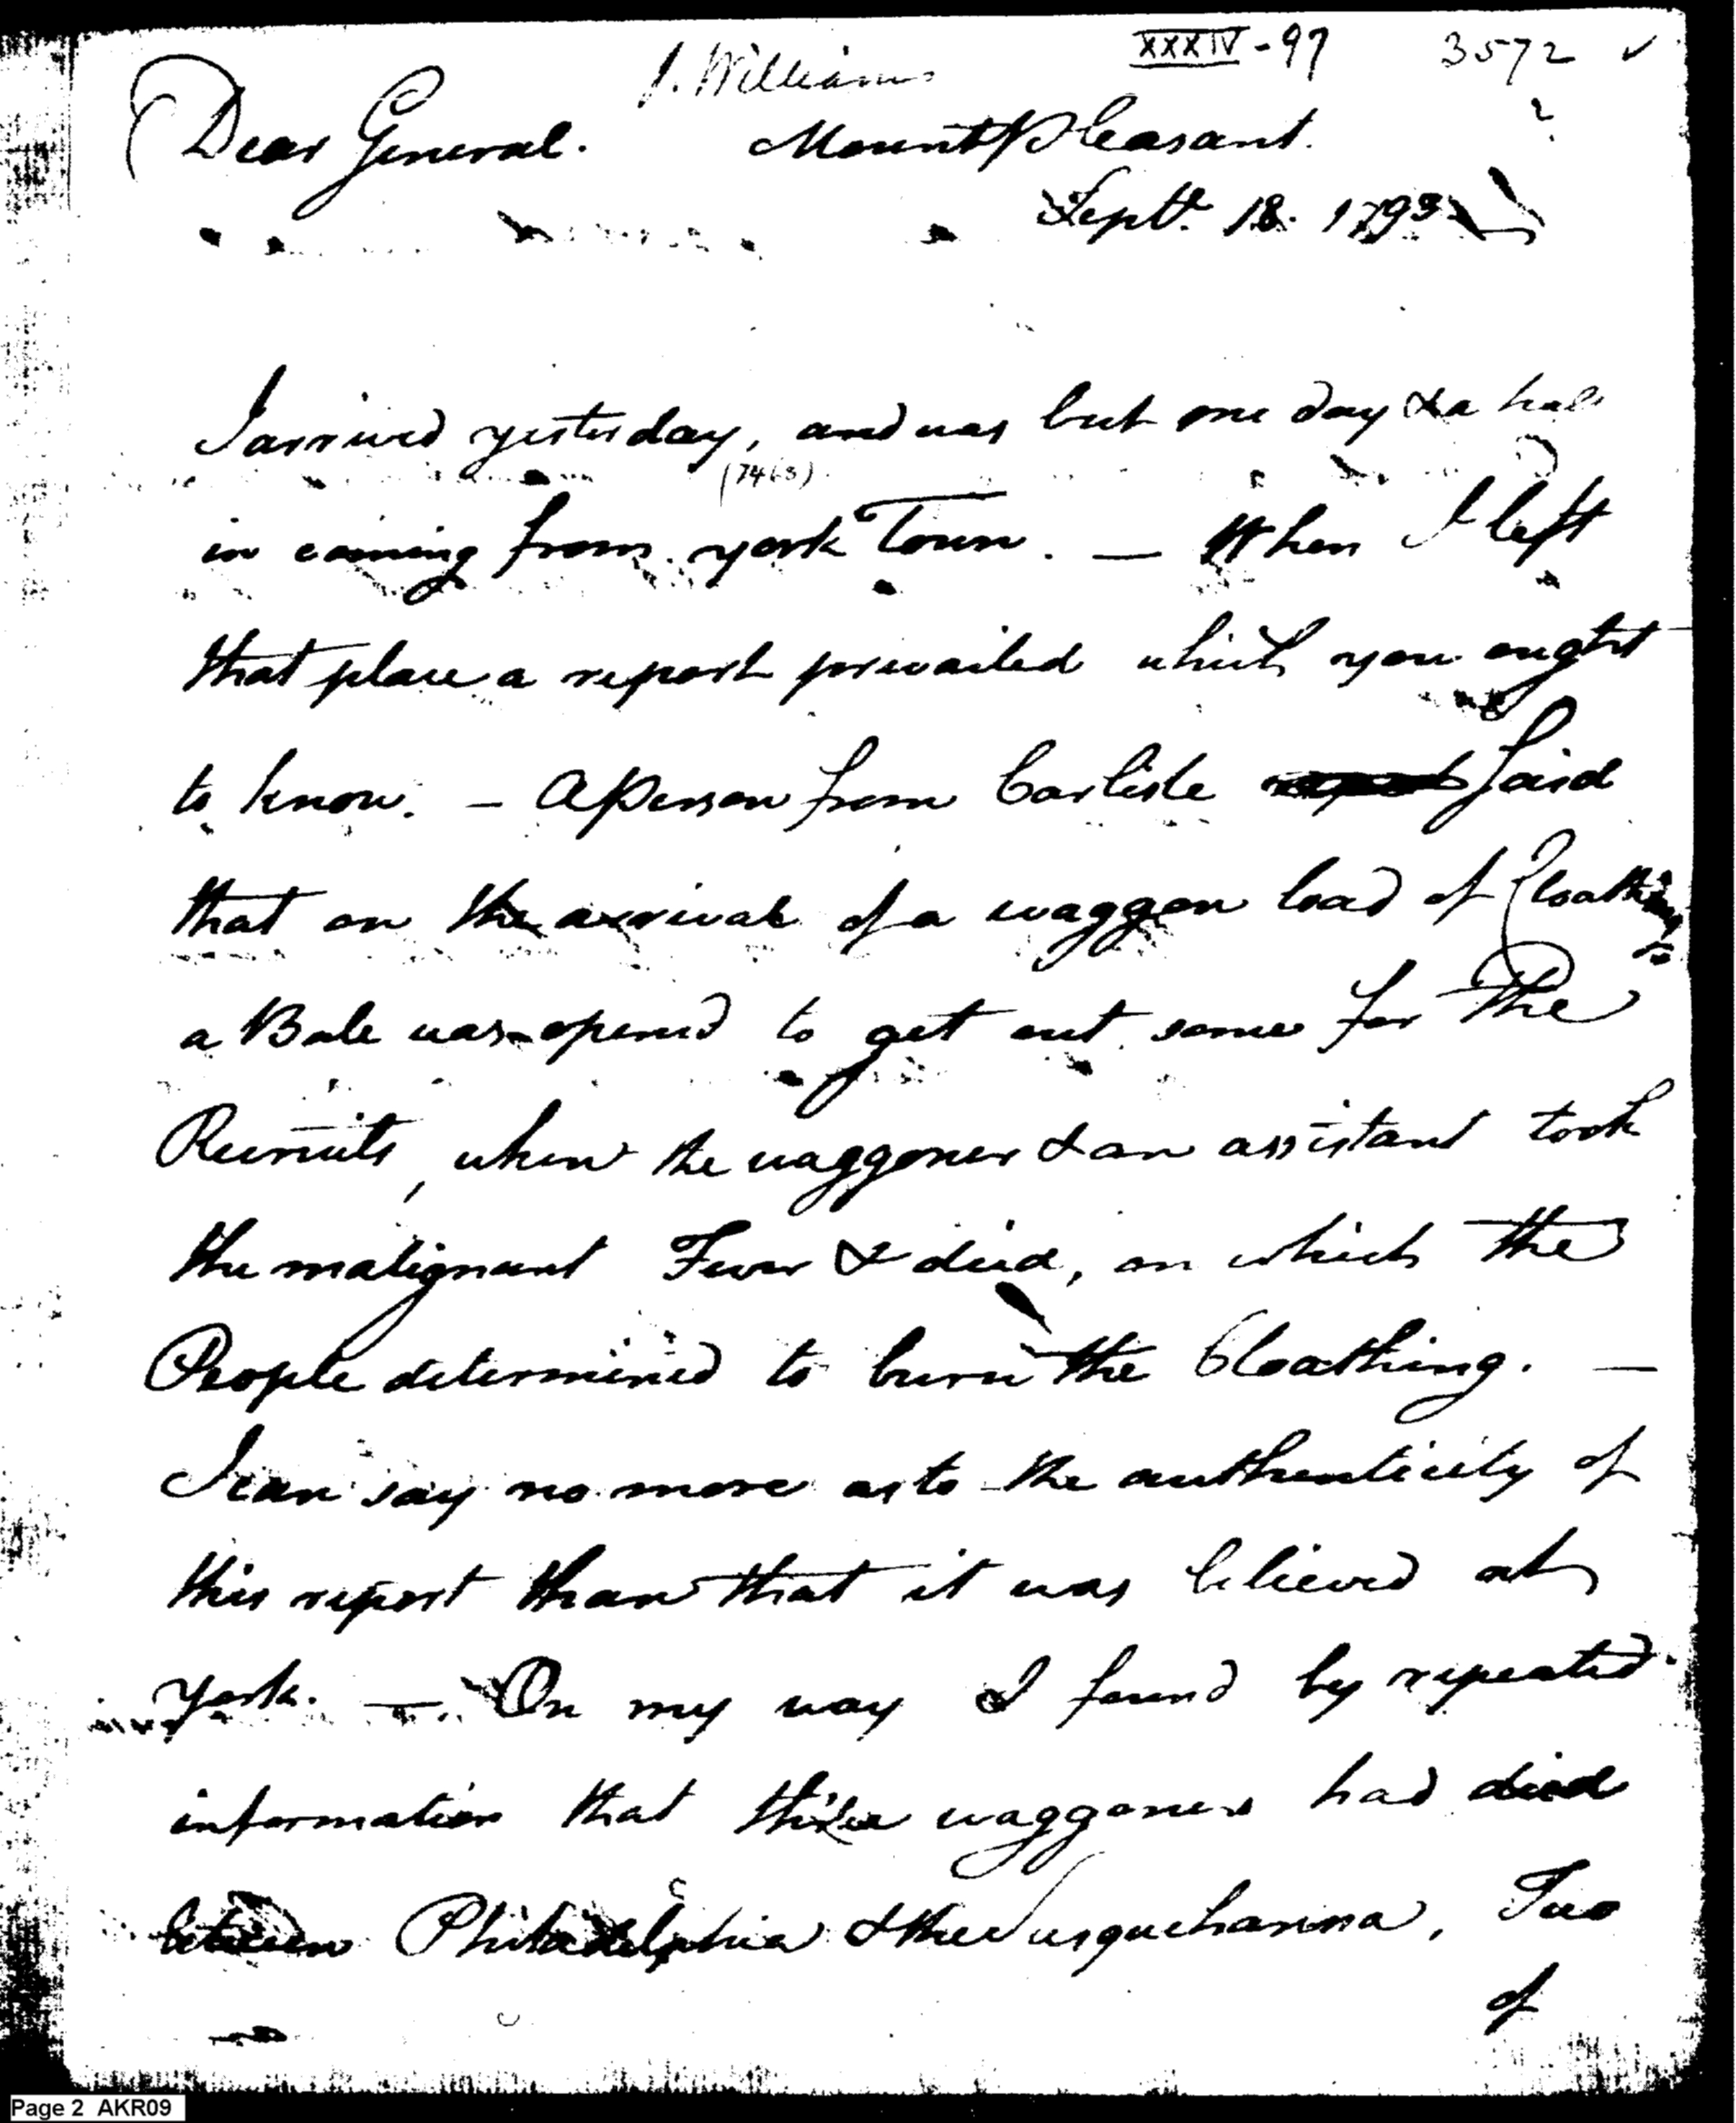 J. Williams XXXIV-97 3572 ✓
Dear General. Mount Pleasant. ?
Septr. 18. 1793
I arrived yesterday, and was but one day & a half
(7463)
in coming from york Town. — When I left
that place a report prevailed which you ought
to know. — A Person from Carlisle said
that on the arrival of a waggon load of Cloathing
a Bale was opened to get out some for the
Recruits, when the waggoner & an assistant took
the malignant Fever & died, on which the
People determined to burn the Cloathing. —
I can say no more as to the authenticity of
this report than that it was believed at
York. — On my way I found by repeated
information that three waggoners had died
between Philadelphia & the Susquehanna, Two
of
Page 2 AKR09